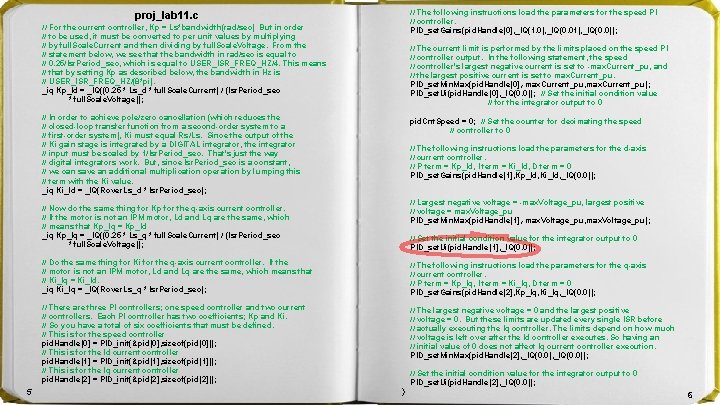 proj_lab11. c
// For the current controller, Kp = Ls*bandwidth(rad/sec) But in order
// to be used, it must be converted to per unit values by multiplying
// by full. Scale. Current and then dividing by full. Scale. Voltage. From the
// statement below, we see that the bandwidth in rad/sec is equal to
// 0.25/Isr. Period_sec, which is equal to USER_ISR_FREQ_HZ/4. This means
// that by setting Kp as described below, the bandwidth in Hz is
// USER_ISR_FREQ_HZ/(8*pi).
_iq Kp_Id = _IQ((0.25 * Ls_d * full. Scale. Current) / (Isr. Period_sec
* full. Scale. Voltage));
// In order to achieve pole/zero cancellation (which reduces the
// closed-loop transfer function from a second-order system to a
// first-order system), Ki must equal Rs/Ls. Since the output of the
// Ki gain stage is integrated by a DIGITAL integrator, the integrator
// input must be scaled by 1/Isr. Period_sec. That's just the way
// digital integrators work. But, since Isr. Period_sec is a constant,
// we can save an additional multiplication operation by lumping this
// term with the Ki value.
_iq Ki_Id = _IQ(Rover. Ls_d * Isr. Period_sec);
// Now do the same thing for Kp for the q-axis current controller.
// If the motor is not an IPM motor, Ld and Lq are the same, which
// means that Kp_Iq = Kp_Id
_iq Kp_Iq = _IQ((0.25 * Ls_q * full. Scale. Current) / (Isr. Period_sec
* full. Scale. Voltage));
// Do the same thing for Ki for the q-axis current controller. If the
// motor is not an IPM motor, Ld and Lq are the same, which means that
// Ki_Iq = Ki_Id.
_iq Ki_Iq = _IQ(Rover. Ls_q * Isr. Period_sec);
// There are three PI controllers; one speed controller and two current
// controllers. Each PI controller has two coefficients; Kp and Ki.
// So you have a total of six coefficients that must be defined.
// This is for the speed controller
pid. Handle[0] = PID_init(&pid[0], sizeof(pid[0]));
// This is for the Id current controller
pid. Handle[1] = PID_init(&pid[1], sizeof(pid[1]));
// This is for the Iq current controller
pid. Handle[2] = PID_init(&pid[2], sizeof(pid[2]));
5
// The following instructions load the parameters for the speed PI
// controller.
PID_set. Gains(pid. Handle[0], _IQ(1.0), _IQ(0.01), _IQ(0.0));
// The current limit is performed by the limits placed on the speed PI
// controller output. In the following statement, the speed
// controller's largest negative current is set to -max. Current_pu, and
// the largest positive current is set to max. Current_pu.
PID_set. Min. Max(pid. Handle[0], -max. Current_pu, max. Current_pu);
PID_set. Ui(pid. Handle[0], _IQ(0.0)); // Set the initial condition value
// for the integrator output to 0
pid. Cnt. Speed = 0; // Set the counter for decimating the speed
// controller to 0
// The following instructions load the parameters for the d-axis
// current controller.
// P term = Kp_Id, I term = Ki_Id, D term = 0
PID_set. Gains(pid. Handle[1], Kp_Id, Ki_Id, _IQ(0.0));
// Largest negative voltage = -max. Voltage_pu, largest positive
// voltage = max. Voltage_pu
PID_set. Min. Max(pid. Handle[1], -max. Voltage_pu, max. Voltage_pu);
// Set the initial condition value for the integrator output to 0
PID_set. Ui(pid. Handle[1], _IQ(0.0));
// The following instructions load the parameters for the q-axis
// current controller.
// P term = Kp_Iq, I term = Ki_Iq, D term = 0
PID_set. Gains(pid. Handle[2], Kp_Iq, Ki_Iq, _IQ(0.0));
// The largest negative voltage = 0 and the largest positive
// voltage = 0. But these limits are updated every single ISR before
// actually executing the Iq controller. The limits depend on how much
// voltage is left over after the Id controller executes. So having an
// initial value of 0 does not affect Iq current controller execution.
PID_set. Min. Max(pid. Handle[2], _IQ(0.0), _IQ(0.0));
// Set the initial condition value for the integrator output to 0
PID_set. Ui(pid. Handle[2], _IQ(0.0));
}
6